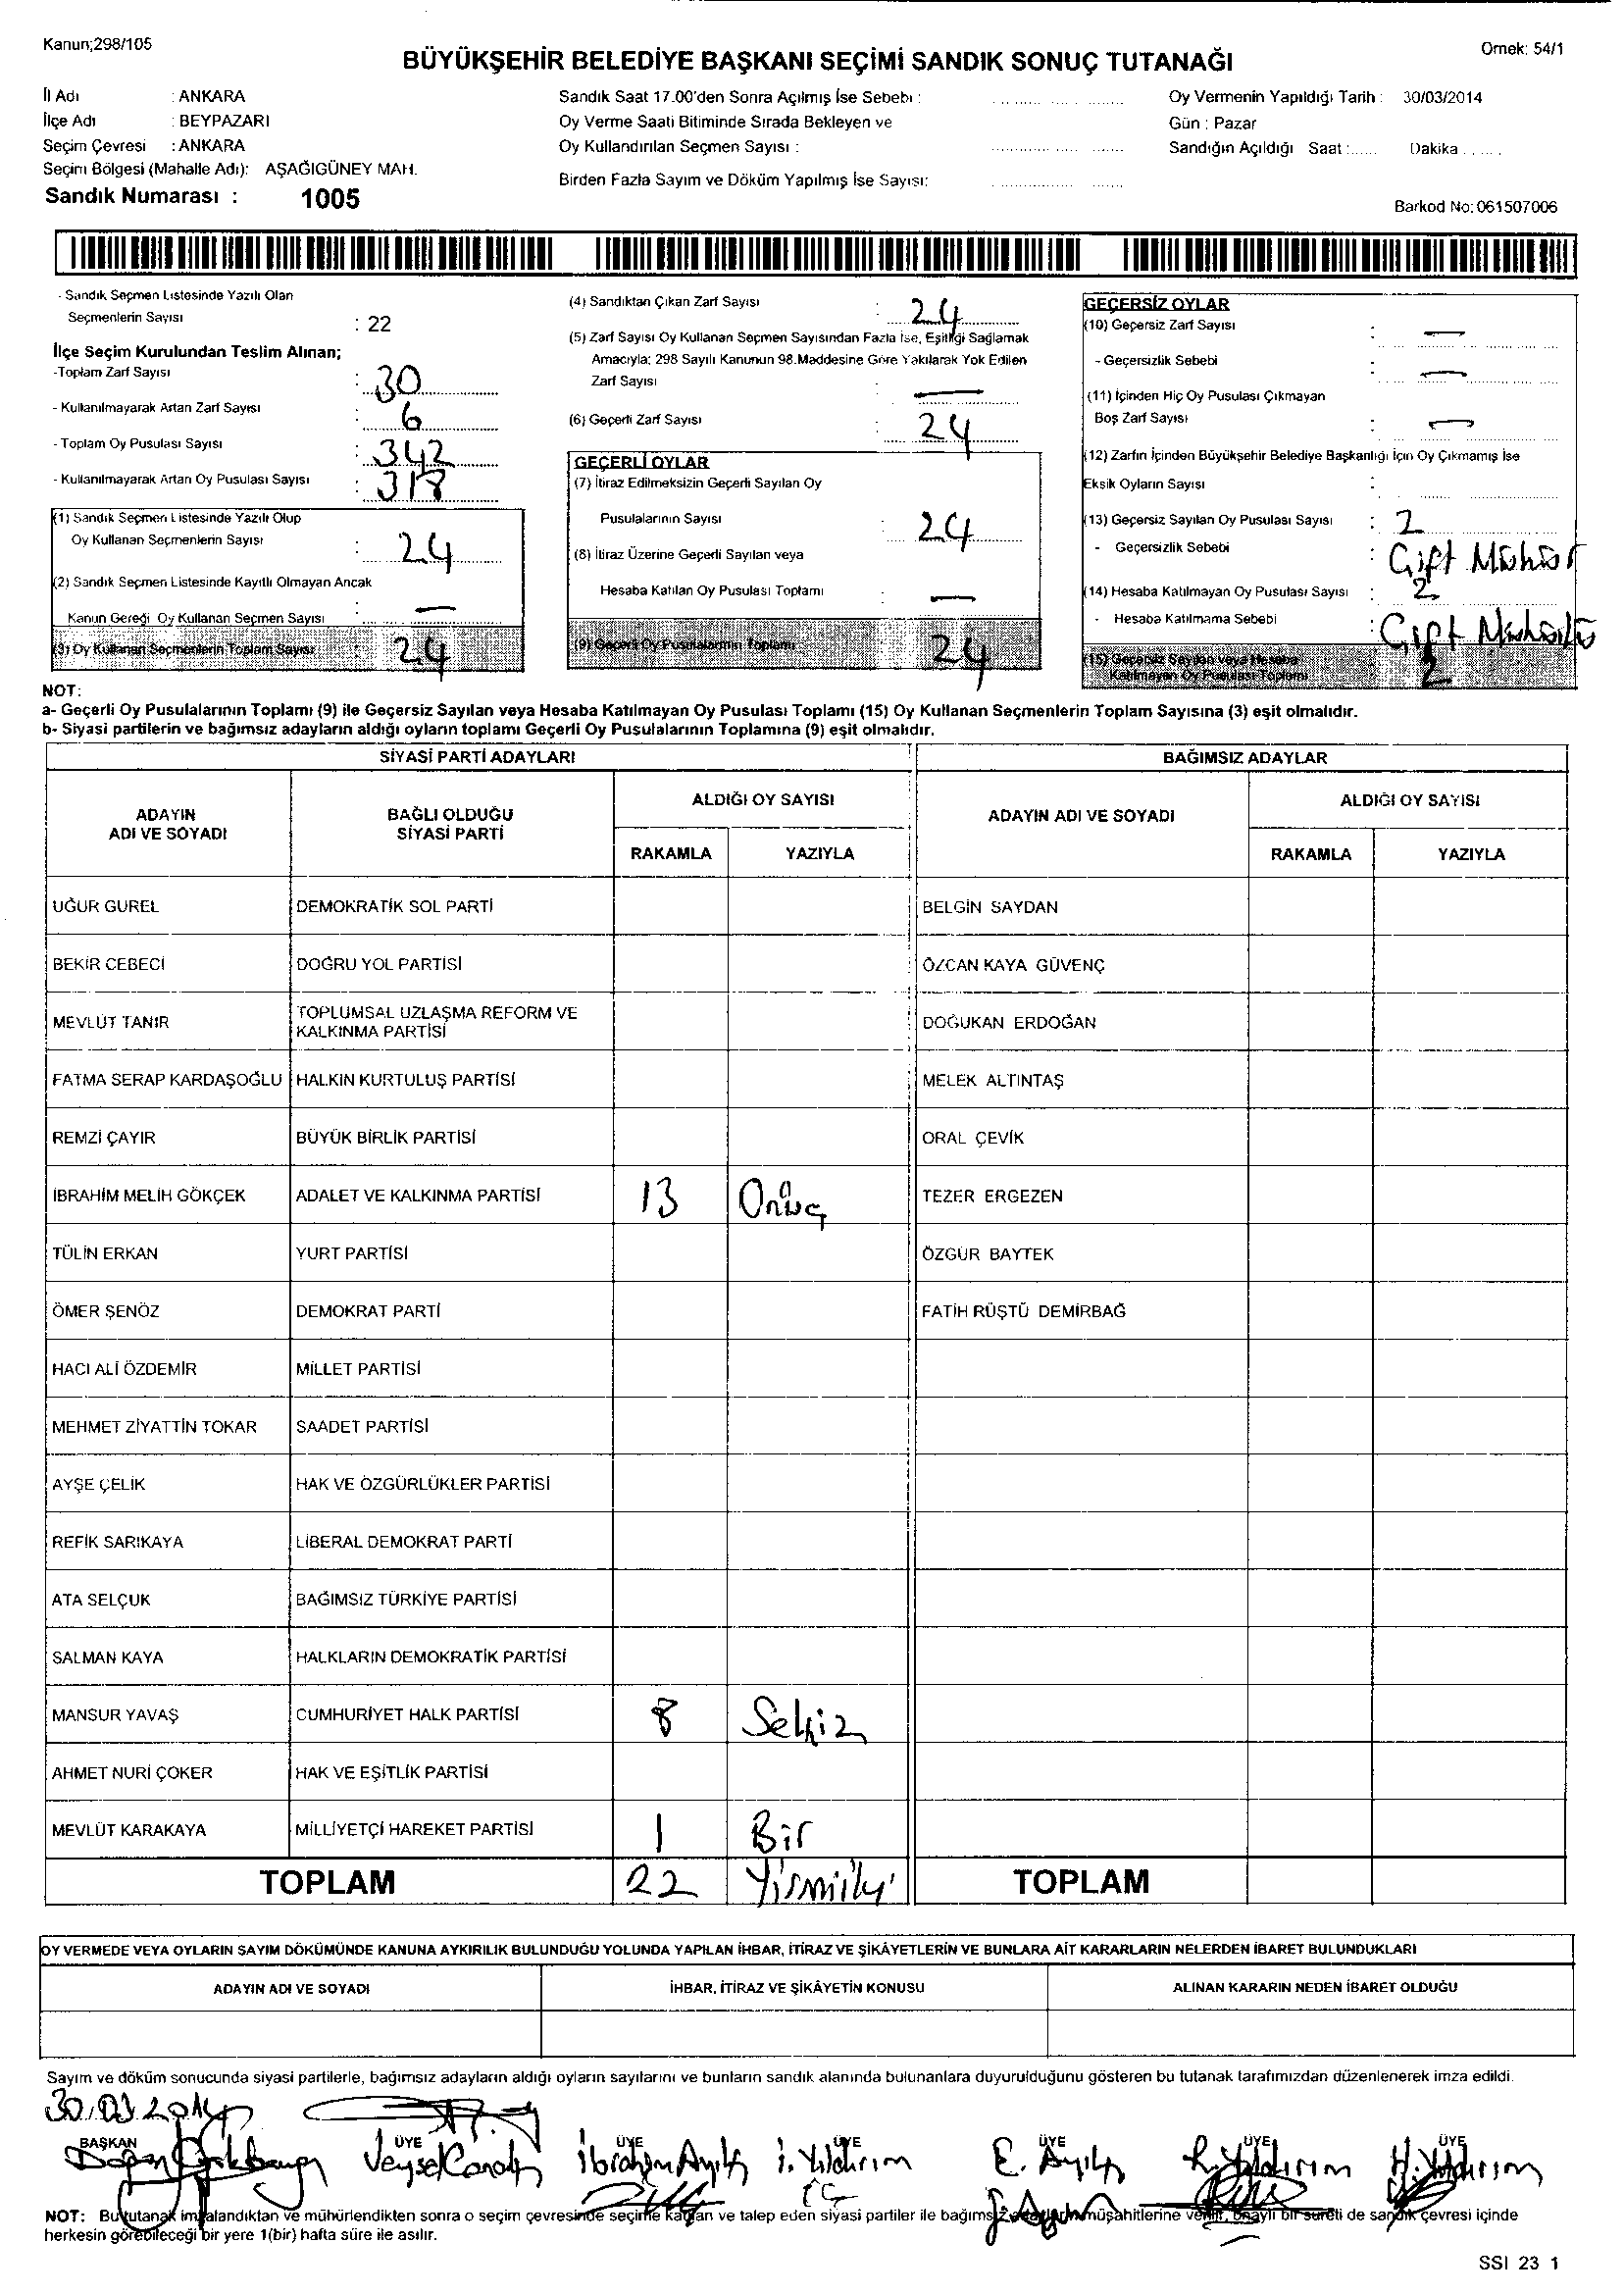 Kanun;298/105
Örnek: 54/1
BÜYÜKŞEHİR BELEDİYE BAŞKANI SEÇİMİ SANDIK SONUÇ TUTANAĞI
İl Adı : ANKARA
İlçe Adı : BEYPAZARI
Seçim Çevresi : ANKARA
Seçim Bölgesi (Mahalle Adı): AŞAĞIGÜNEY MAH.
Sandık Numarası : 1005
Sandık Saat 17.00'den Sonra Açılmış İse Sebebi :
Oy Verme Saati Bitiminde Sırada Bekleyen ve
Oy Kullandırılan Seçmen Sayısı :
Birden Fazla Sayım ve Döküm Yapılmış İse Sayısı:
Oy Vermenin Yapıldığı Tarih : 30/03/2014
Gün : Pazar
Sandığın Açıldığı Saat :...... Dakika ......
Barkod No: 061507006
- Sandık Seçmen Listesinde Yazılı Olan
Seçmenlerin Sayısı : 22
İlçe Seçim Kurulundan Teslim Alınan;
-Toplam Zarf Sayısı : 30
- Kullanılmayarak Artan Zarf Sayısı : 6
- Toplam Oy Pusulası Sayısı : 342
- Kullanılmayarak Artan Oy Pusulası Sayısı : 318
(1) Sandık Seçmen Listesinde Yazılı Olup
Oy Kullanan Seçmenlerin Sayısı : 24
(2) Sandık Seçmen Listesinde Kayıtlı Olmayan Ancak
Kanun Gereği Oy Kullanan Seçmen Sayısı : —
(3) Oy Kullanan Seçmenlerin Toplam Sayısı : 24
(4) Sandıktan Çıkan Zarf Sayısı : 24
(5) Zarf Sayısı Oy Kullanan Seçmen Sayısından Fazla İse, Eşitliği Sağlamak
Amacıyla; 298 Sayılı Kanunun 98.Maddesine Göre Yakılarak Yok Edilen
Zarf Sayısı : —
(6) Geçerli Zarf Sayısı : 24
GEÇERLİ OYLAR
(7) İtiraz Edilmeksizin Geçerli Sayılan Oy
Pusulalarının Sayısı : 24
(8) İtiraz Üzerine Geçerli Sayılan veya
Hesaba Katılan Oy Pusulası Toplamı : —
(9) Geçerli Oy Pusulalarının Toplamı 24
GEÇERSİZ OYLAR
(10) Geçersiz Zarf Sayısı : —
- Geçersizlik Sebebi : —
(11) İçinden Hiç Oy Pusulası Çıkmayan
Boş Zarf Sayısı : —
(12) Zarfın İçinden Büyükşehir Belediye Başkanlığı İçin Oy Çıkmamış İse
Eksik Oyların Sayısı :
(13) Geçersiz Sayılan Oy Pusulası Sayısı : 2
- Geçersizlik Sebebi : Çift Mühür
(14) Hesaba Katılmayan Oy Pusulası Sayısı : 2
- Hesaba Katılmama Sebebi : Çift
(15) Geçersiz Sayılan veya Hesaba
Katılmayan Oy Pusulası Toplamı 2
NOT:
a- Geçerli Oy Pusulalarının Toplamı (9) ile Geçersiz Sayılan veya Hesaba Katılmayan Oy Pusulası Toplamı (15) Oy Kullanan Seçmenlerin Toplam Sayısına (3) eşit olmalıdır.
b- Siyasi partilerin ve bağımsız adayların aldığı oyların toplamı Geçerli Oy Pusulalarının Toplamına (9) eşit olmalıdır.
SİYASİ PARTİ ADAYLARI BAĞIMSIZ ADAYLAR
ADAYIN ADI VE SOYADI BAĞLI OLDUĞU SİYASİ PARTİ ALDIĞI OY SAYISI ADAYIN ADI VE SOYADI ALDIĞI OY SAYISI
RAKAMLA YAZIYLA RAKAMLA YAZIYLA
UĞUR GUREL DEMOKRATİK SOL PARTİ BELGİN SAYDAN
BEKİR CEBECİ DOĞRU YOL PARTİSİ ÖZCAN KAYA GÜVENÇ
MEVLÜT TANIR TOPLUMSAL UZLAŞMA REFORM VE KALKINMA PARTİSİ DOĞUKAN ERDOĞAN
FATMA SERAP KARDAŞOĞLU HALKIN KURTULUŞ PARTİSİ MELEK ALTINTAŞ
REMZİ ÇAYIR BÜYÜK BİRLİK PARTİSİ ORAL ÇEVİK
İBRAHİM MELİH GÖKÇEK ADALET VE KALKINMA PARTİSİ 13 Onüç TEZER ERGEZEN
TÜLİN ERKAN YURT PARTİSİ ÖZGÜR BAYTEK
ÖMER ŞENÖZ DEMOKRAT PARTİ FATİH RÜŞTÜ DEMİRBAĞ
HACI ALİ ÖZDEMİR MİLLET PARTİSİ
MEHMET ZİYATTİN TOKAR SAADET PARTİSİ
AYŞE ÇELİK HAK VE ÖZGÜRLÜKLER PARTİSİ
REFİK SARIKAYA LİBERAL DEMOKRAT PARTİ
ATA SELÇUK BAĞIMSIZ TÜRKİYE PARTİSİ
SALMAN KAYA HALKLARIN DEMOKRATİK PARTİSİ
MANSUR YAVAŞ CUMHURİYET HALK PARTİSİ 8 Sekiz
AHMET NURİ ÇOKER HAK VE EŞİTLİK PARTİSİ
MEVLÜT KARAKAYA MİLLİYETÇİ HAREKET PARTİSİ 1 Bir
TOPLAM 22 Yirmiiki TOPLAM
OY VERMEDE VEYA OYLARIN SAYIM DÖKÜMÜNDE KANUNA AYKIRILIK BULUNDUĞU YOLUNDA YAPILAN İHBAR, İTİRAZ VE ŞİKÂYETLERİN VE BUNLARA AİT KARARLARIN NELERDEN İBARET BULUNDUKLARI
ADAYIN ADI VE SOYADI İHBAR, İTİRAZ VE ŞİKÂYETİN KONUSU ALINAN KARARIN NEDEN İBARET OLDUĞU
Sayım ve döküm sonucunda siyasi partilerle, bağımsız adayların aldığı oyların sayılarını ve bunların sandık alanında bulunanlara duyurulduğunu gösteren bu tutanak tarafımızdan düzenlenerek imza edildi.
30.03.2014
BAŞKAN ÜYE ÜYE ÜYE ÜYE ÜYE ÜYE
Doğan İbrahim Ayılı İ. Yıldırım E. Ayılı R. Yıldırım H. Yıldırım
NOT: Bu tutanak imzalandıktan ve mühürlendikten sonra o seçim çevresinde seçime katılan ve talep eden siyasi partiler ile bağımsız adayların müşahitlerine verilir, onaylı bir sureti de sandık çevresi içinde
herkesin görebileceği bir yere 1(bir) hafta süre ile asılır.
SSI 23 1